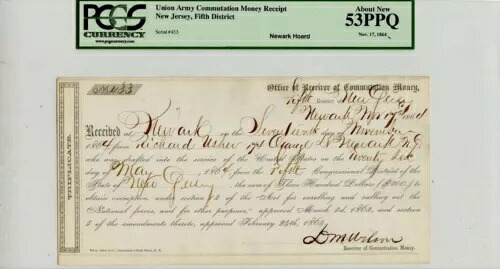 PCGS
CURRENCY
PCGSCURRENCY.COM
Union Army Commutation Money Receipt
New Jersey, Fifth District
Serial#453
Newark Hoard
About New
53PPQ
Nov. 17, 1864
Office of Receiver of Commutation Money,
Fifth District of New Jersey
Newark Nov 17th 1864
TRIPLICATE.
Received at Newark on the Seventeenth day of November
1864 from Richard Usher 174 Orange St Newark N.J
who was drafted into the service of the United States on the Twenty
day of May 1864 from the Fifth Congressional District of the
State of New Jersey, the sum of Three Hundred Dollars ($300,) to
obtain exemption under section 13 of the "Act for enrolling and calling out the
National forces, and for other purposes," approved March 3d, 1863, and section
5 of the amendments thereto, approved February 24th, 1864.
D M Wilson
Receiver of Commutation Money.